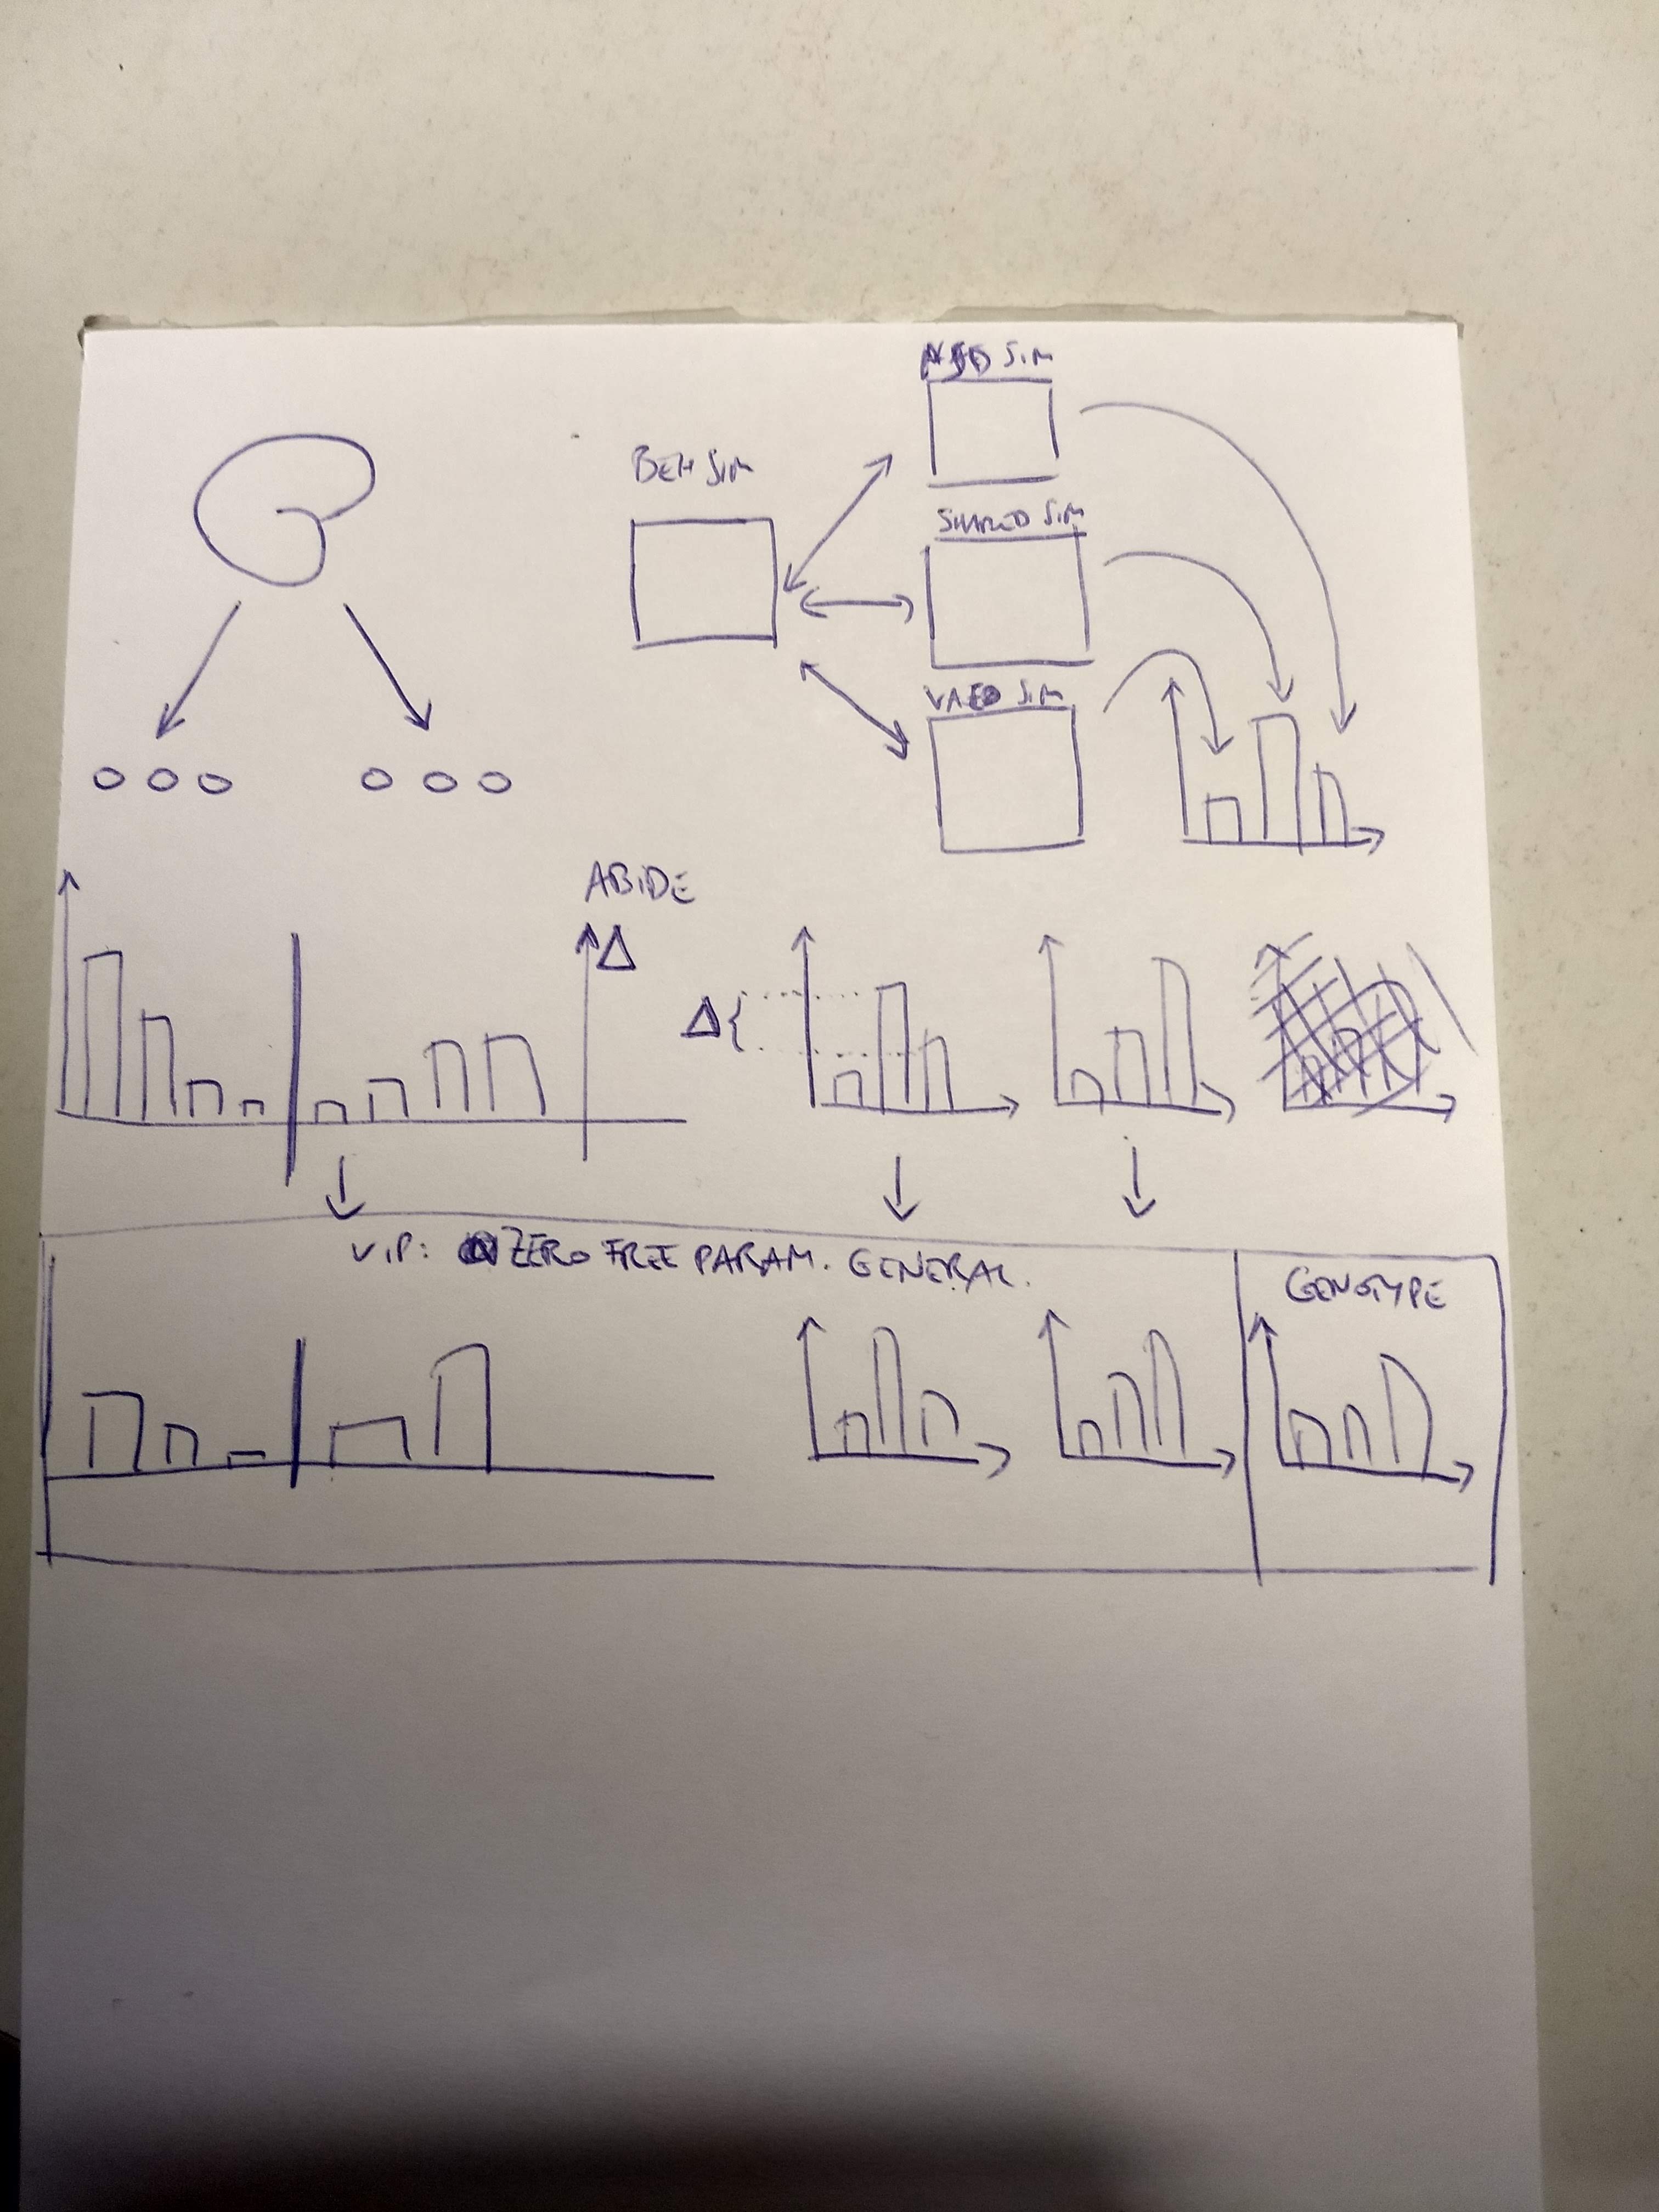 ASD SIM
BEH SIM
SHARED SIM
VAE SIM
ABIDE
Δ
Δ{
VIP: ZERO FREE PARAM. GENERAL.
GENOTYPE